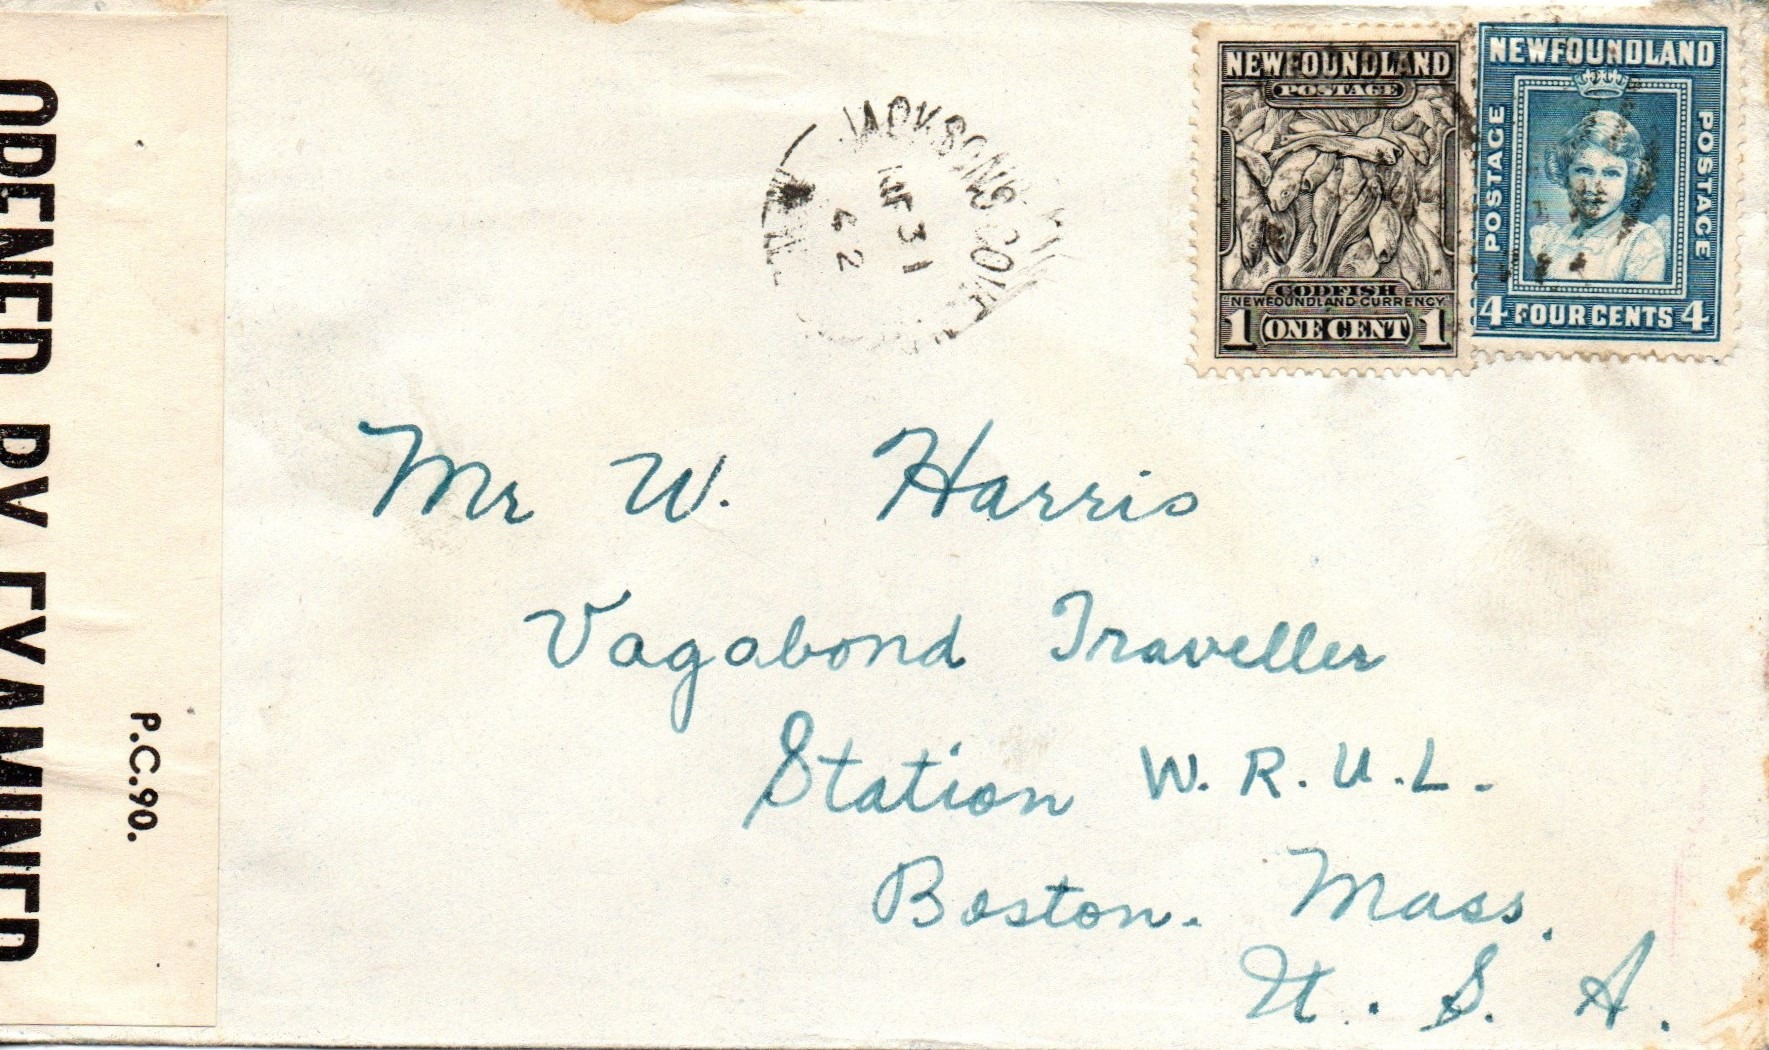 OPENED BY EXAMINER
P.C.90.
JACKSONS COVE
31
42
NEWFOUNDLAND
POSTAGE
CODFISH
NEWFOUNDLAND CURRENCY
1 ONE CENT 1
NEWFOUNDLAND
POSTAGE
POSTAGE
4 FOUR CENTS 4
Mr W. Harris
Vagabond Traveller
Station W.R.U.L.
Boston. Mass.
U.S.A.